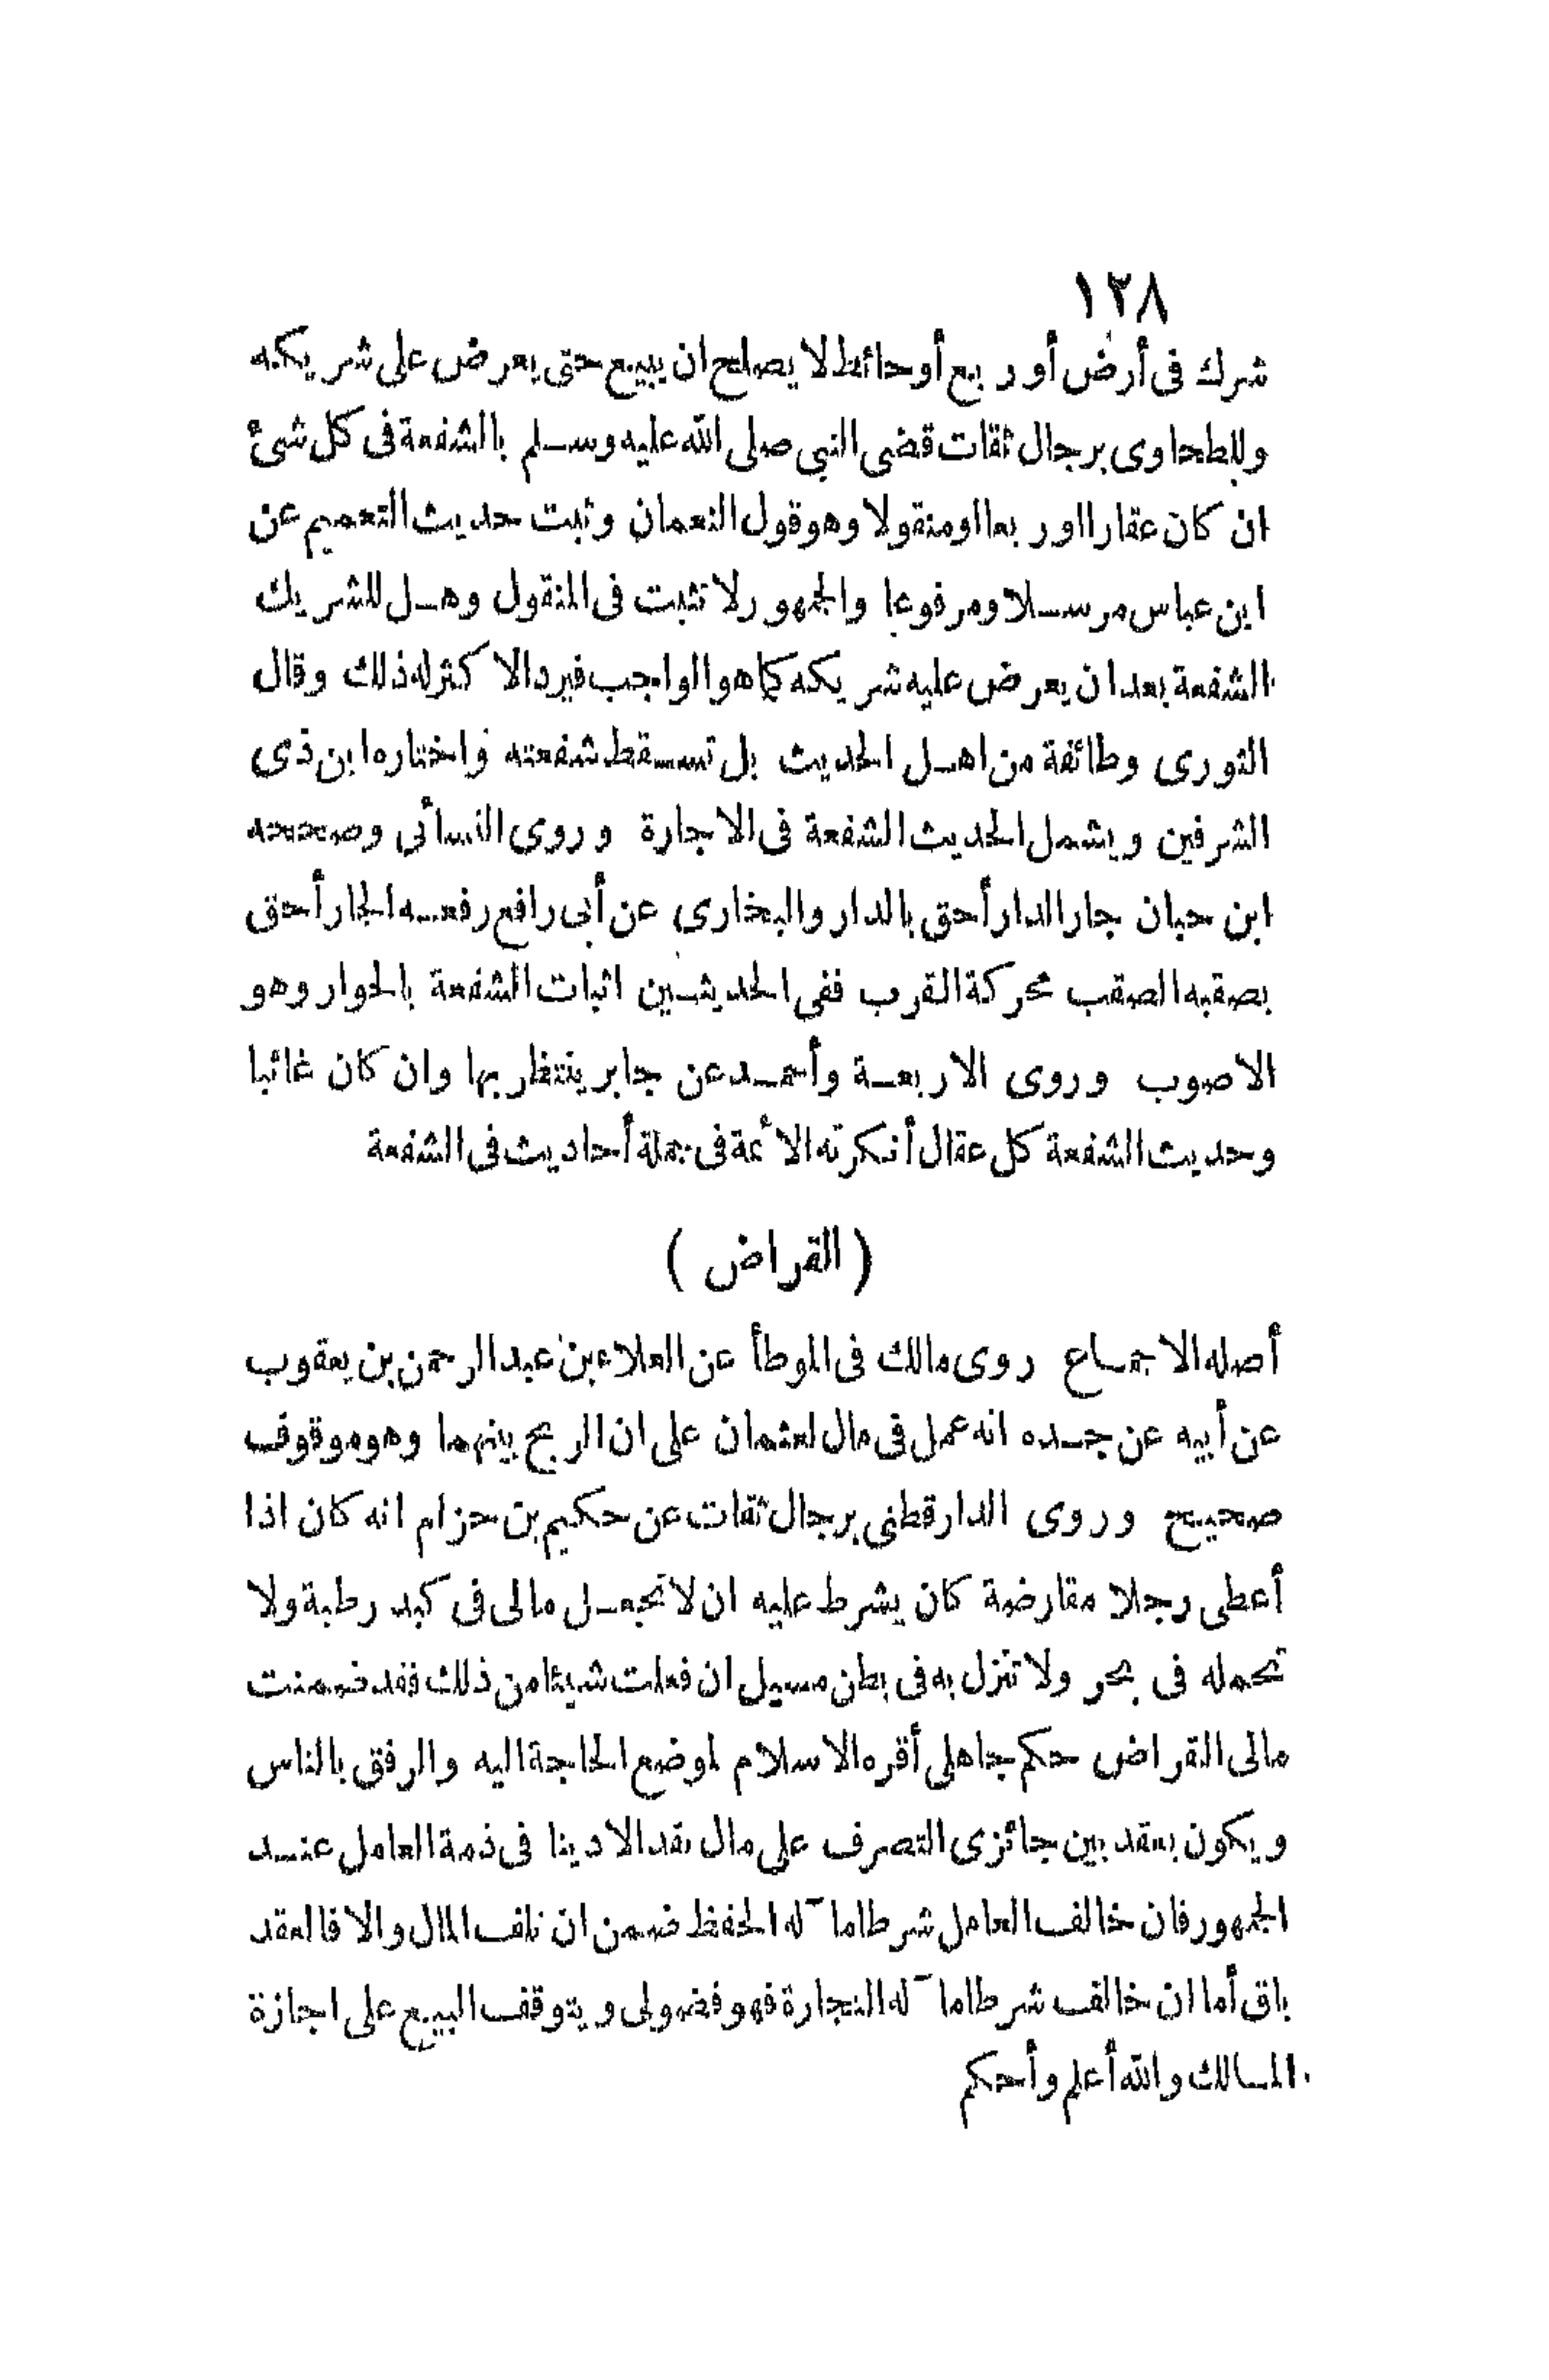 ١٢٨
شرك فى أرض أو ربع أو حائط لا يصلح ان يبيع حتى يعرض على شريكه
وللطحاوى برجال ثقات قضى النبى صلى الله عليه وسلم بالشفعة فى كل شئ
ان كان عقارا او ربعا او منقولا وهو قول النعمان وثبت حديث التعميم عن
ابن عباس مرسلا ومرفوعا والجمهور لا تثبت فى المنقول وهل للشريك
الشفعة بعد ان يعرض عليه شريكه كما هو الواجب فيرد الاكثر له ذلك وقال
الثورى وطائفة من اهل الحديث بل تسقط شفعته واختاره ابن ذى
الشرفين ويشمل الحديث الشفعة فى الاجارة وروى النسائى وصححه
ابن حبان جار الدار أحق بالدار والبخارى عن أبى رافع رفعه الجار أحق
بصقبه الصقب محركة القرب ففى الحديثين اثبات الشفعة بالجوار وهو
الاصوب وروى الاربعة وأحمد عن جابر ينتظر بها وان كان غائبا
وحديث الشفعة كل عقال أنكرته الائمة فى جملة أحاديث فى الشفعة
( القراض )
أصله الاجماع روى مالك فى الموطأ عن العلاء بن عبد الرحمن بن يعقوب
عن أبيه عن جده انه عمل فى مال لعثمان على ان الربح بينهما وهو موقوف
صحيح وروى الدارقطنى برجال ثقات عن حكيم بن حزام انه كان اذا
أعطى رجلا مقارضة كان يشرط عليه ان لا تجعل مالى فى كبد رطبة ولا
تحمله فى بحر ولا تنزل به فى بطن مسيل ان فعلت شيئا من ذلك فقد ضمنت
مالى القراض حكم جاهلى أقره الاسلام لموضع الحاجة اليه والرفق بالناس
ويكون بعقد بين جائزى التصرف على مال نقد الا دينا فى ذمة العامل عند
الجمهور فان خالف العامل شرطا مآله الحفظ ضمن ان تلف المال والا فالعقد
باق أما ان خالف شرطا مآله التجارة فهو فضولى ويتوقف البيع على اجازة
المالك والله أعلم وأحكم